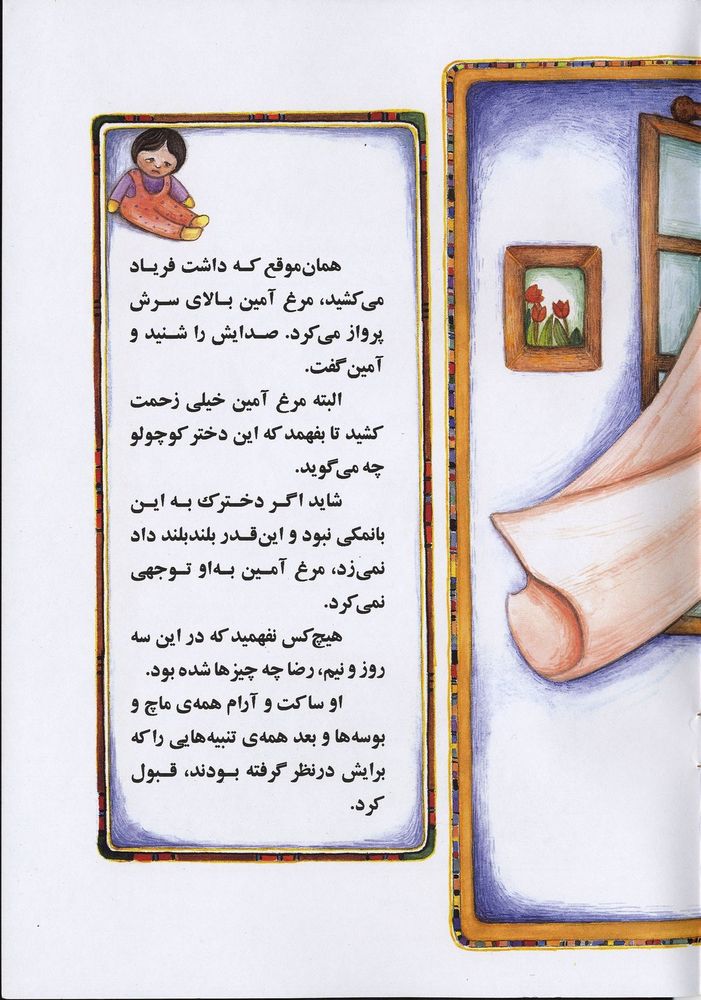 همان‌موقع که داشت فریاد
می‌کشید، مرغ آمین بالای سرش
پرواز می‌کرد. صدایش را شنید و
آمین گفت.
البته مرغ آمین خیلی زحمت
کشید تا بفهمد که این دختر کوچولو
چه می‌گوید.
شاید اگر دخترك به این
بانمکی نبود و این‌قدر بلندبلند داد
نمی‌زد، مرغ آمین به‌او توجهی
نمی‌کرد.
هیچ‌کس نفهمید که در این سه
روز و نیم، رضا چه چیزها شده بود.
او ساکت و آرام همه‌ی ماچ و
بوسه‌ها و بعد همه‌ی تنبیه‌هایی را که
برایش درنظر گرفته بودند، قبول
کرد.